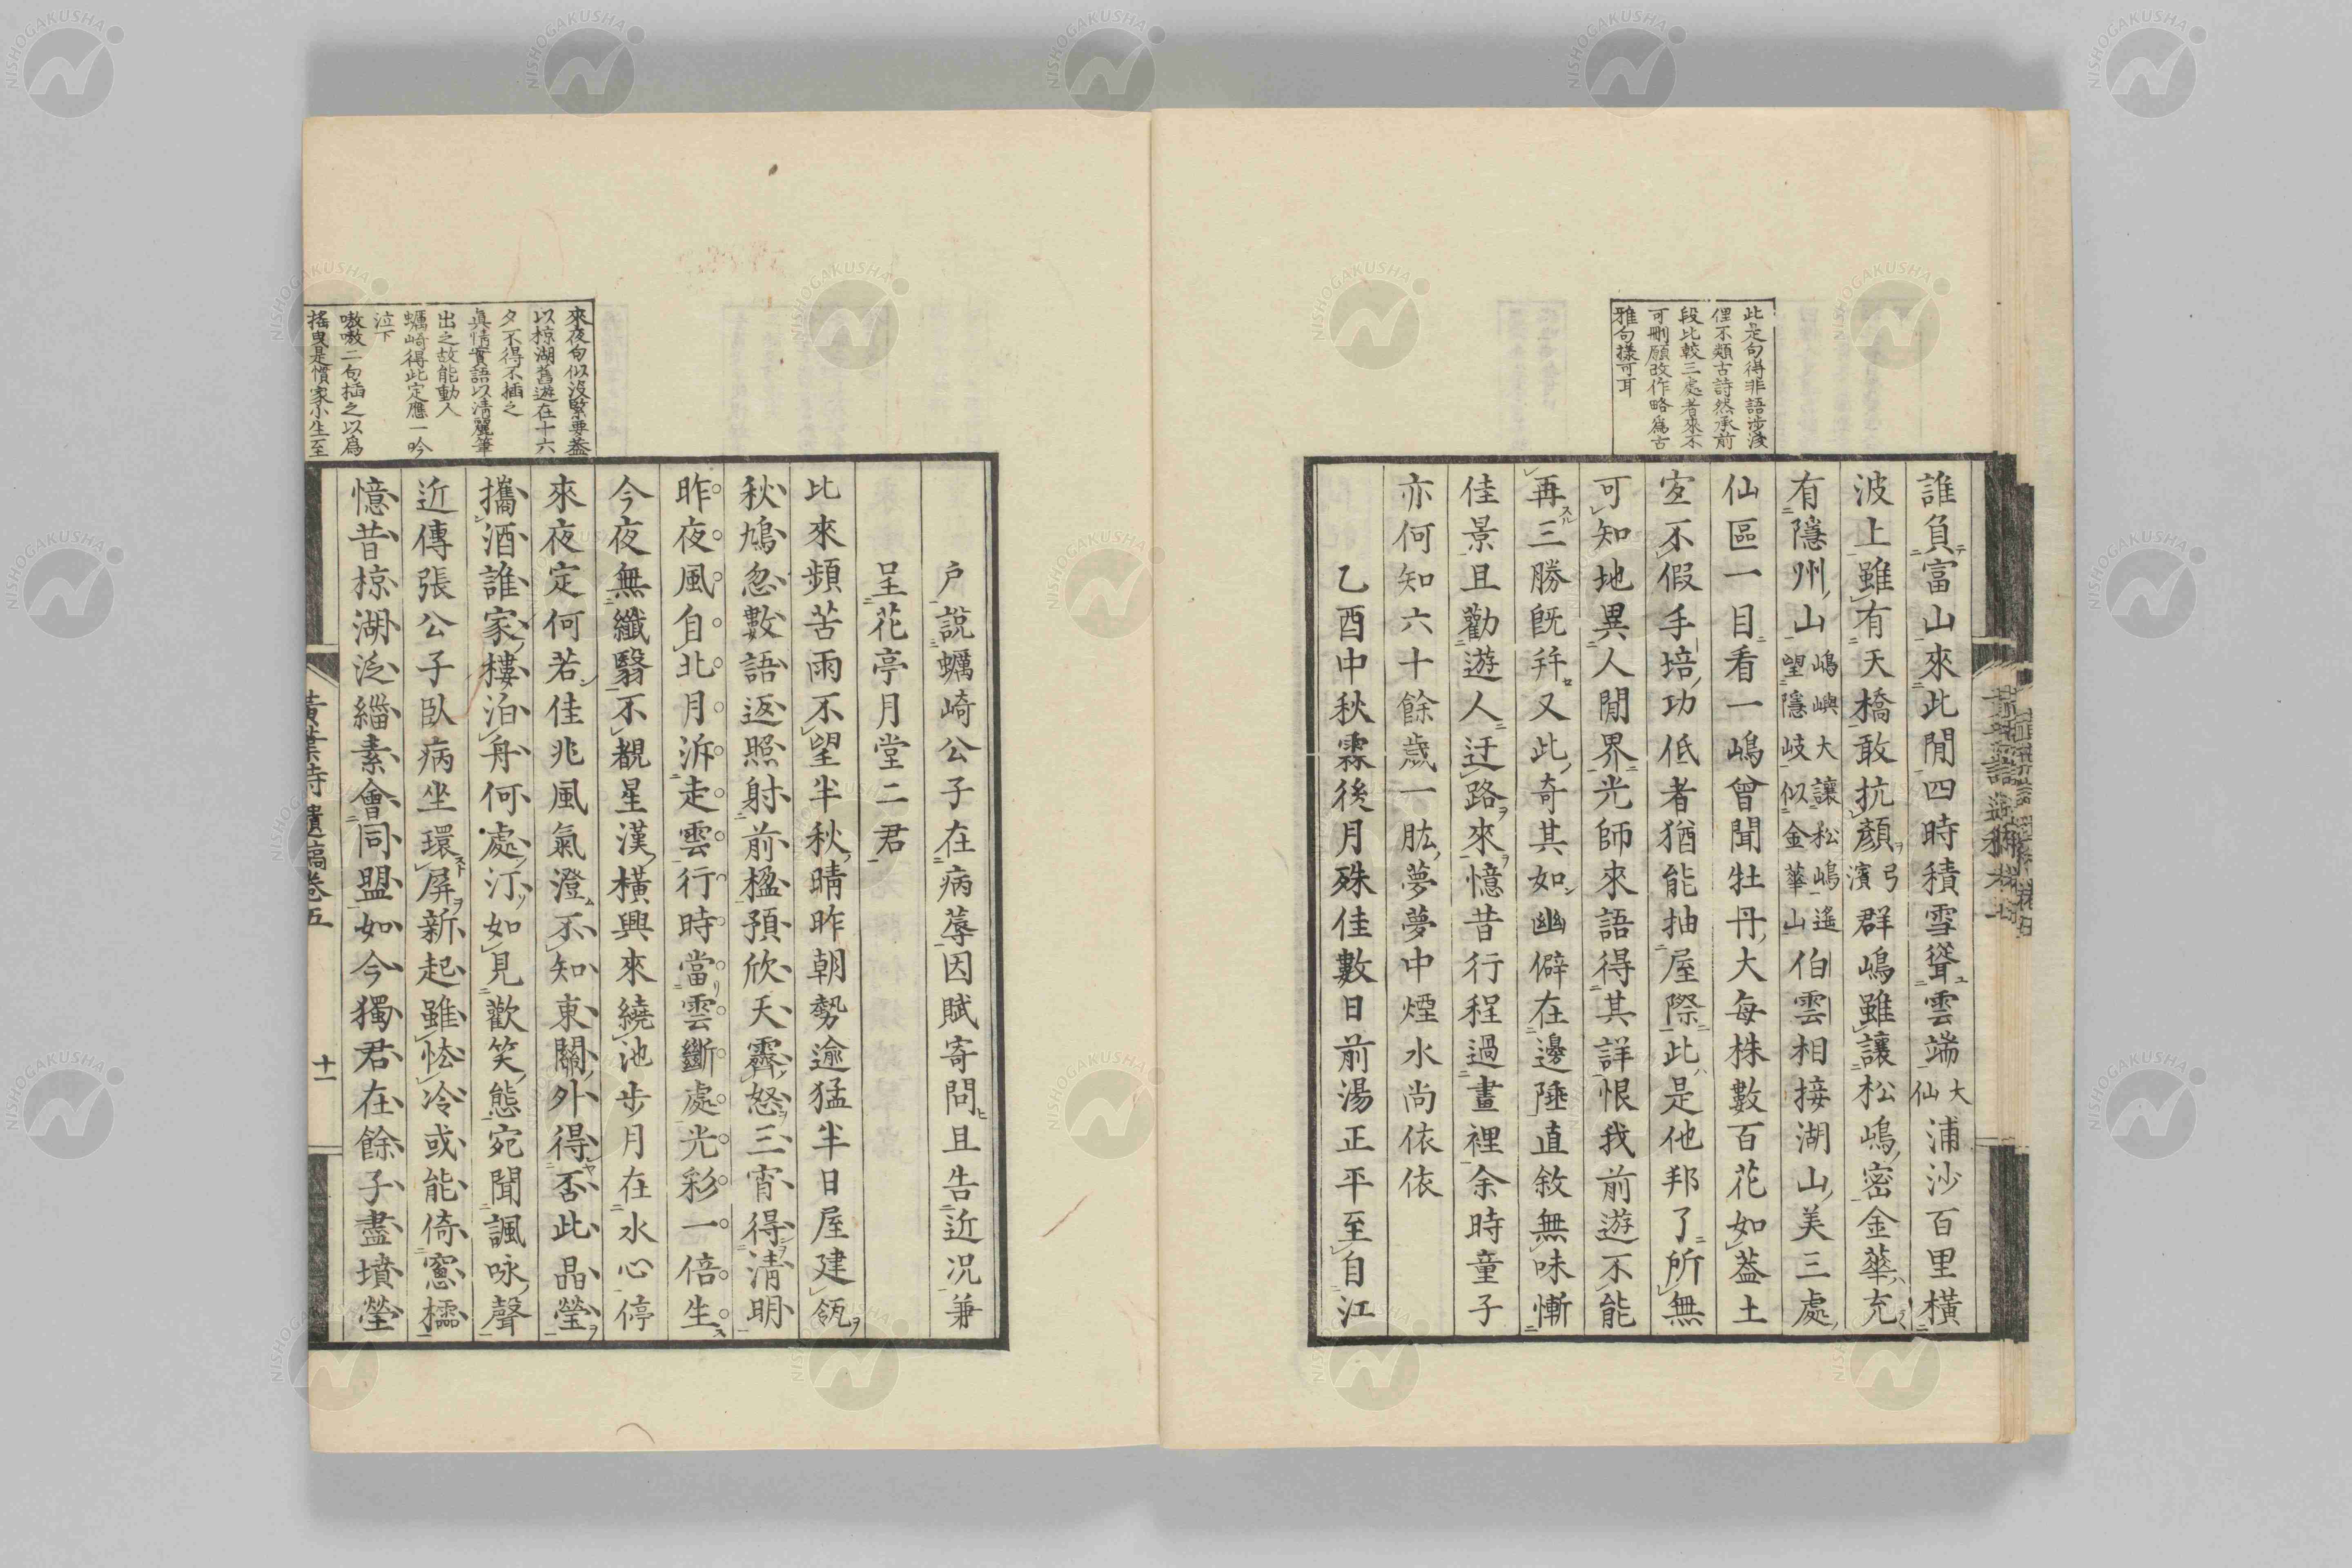 此是句得非語涉浅
俚不類古詩然承前
段比較三處者來不
可刪願改作略爲古
雅句樣可耳
誰負富山來此間四時積雪聳雲端大仙浦沙百里橫
波上雖有天橋敢抗顏弓濱群嶋雖讓松嶋密金華充
有隱州山嶋嶼大讓松嶋遙望隱岐似金華山伯雲相接湖山美三處
仙區一目看一嶋曾聞牡丹大每株數百花如葢土
宜不假手培功低者猶能抽屋際此是他邦了所無
可知地異人間界光師來語得其詳恨我前遊不能
再三勝既幷又此奇其如幽僻在邊陲直敘無味慚
佳景且勸遊人迂路來憶昔行程過畫裡余時童子
亦何知六十餘歲一肱夢夢中煙水尚依依
乙酉中秋霖後月殊佳數日前湯正平至自江
戶說蠣崎公子在病蓐因賦寄問且告近況兼
呈花亭月堂二君
比來頻苦雨不望半秋晴昨朝勢逾猛半日屋建瓴
秋鳩忽數語返照射前楹預欣天霽怒三宵得清明
昨夜風自北月泝走雲行時當雲斷處光彩一倍生
今夜無纖翳不覩星漢橫興來繞池步月在水心停
來夜定何若佳兆風氣澄不知東關外得否此晶瑩
攜酒誰家樓泊舟何處汀如見歡笑態宛聞諷咏聲
近傳張公子臥病坐環屏新起雖怯冷或能倚窻櫺
憶昔椋湖泛緇素會同盟如今獨君在餘子盡墳塋
來夜句似沒緊要葢
以椋湖舊遊在十六
夕不得不插之
眞情實語以清麗筆
出之故能動人
蠣崎得此定應一吟
泣下
嗷嗷二句插之以爲
搖曳是慣家小生至
黃葉詩遺稿卷五
十一